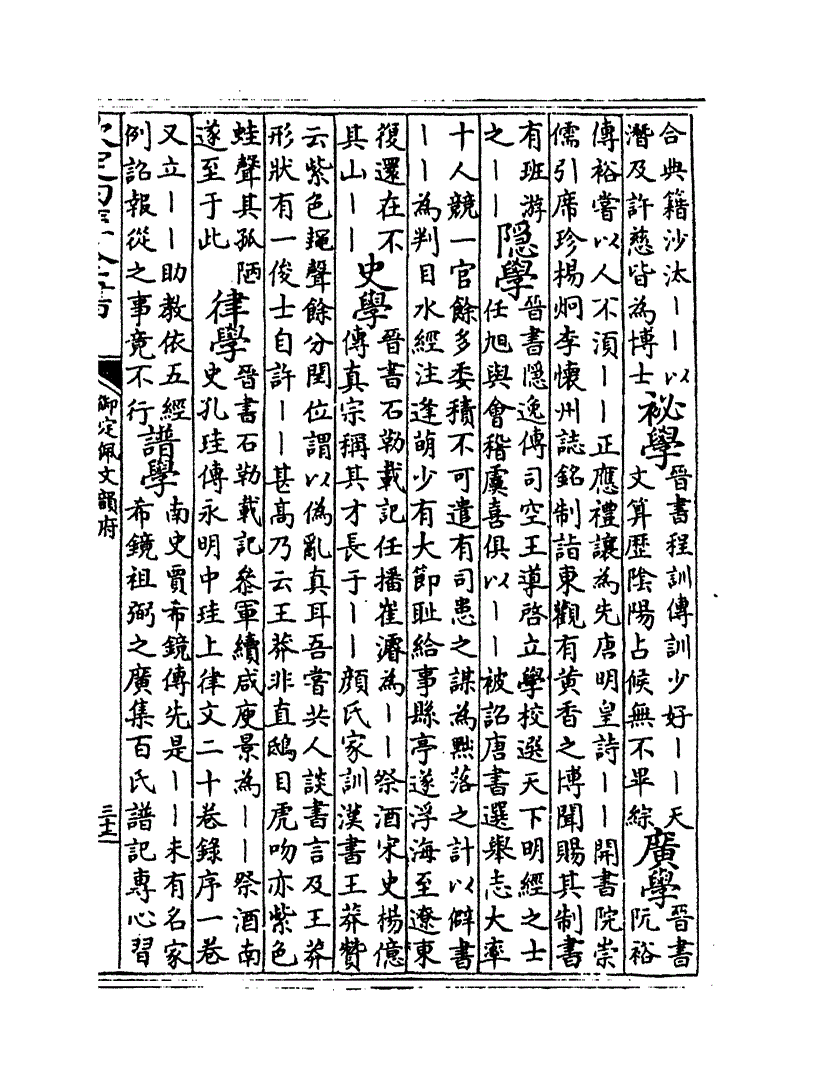 合典籍沙汰丨丨以
潛及許慈皆為博士
祕學
晉書程訓傳訓少好丨丨天
文算歷陰陽占候無不畢綜
廣學
晉書
阮裕
傳裕嘗以人不須丨丨正應禮讓為先唐明皇詩丨丨開書院崇
儒引席珍楊炯李懷州誌銘制詣東觀有黃香之博聞賜其制書
有班游
之丨丨
隱學
晉書隱逸傳司空王導啓立學校選天下明經之士
任旭與會稽虞喜俱以丨丨被詔唐書選舉志大率
十人競一官餘多委積不可遣有司患之謀為黜落之計以僻書
丨丨為判目水經注逢萌少有大節恥給事縣亭遂浮海至遼東
復還在不
其山丨丨
史學
晉書石勒載記任播崔濬為丨丨祭酒宋史楊億
傳真宗稱其才長于丨丨顏氏家訓漢書王莽贊
云紫色䵷聲餘分閏位謂以偽亂真耳吾嘗共人談書言及王莽
形狀有一俊士自許丨丨甚高乃云王莽非直鴟目虎吻亦紫色
蛙聲其孤陋
遂至于此
律學
晉書石勒載記叅軍續咸庾景為丨丨祭酒南
史孔珪傳永明中珪上律文二十卷錄序一卷
又立丨丨助教依五經
例詔報從之事竟不行
譜學
南史賈希鏡傳先是丨丨未有名家
希鏡祖弼之廣集百氏譜記專心習
欽定四庫全書
御定佩文韻府